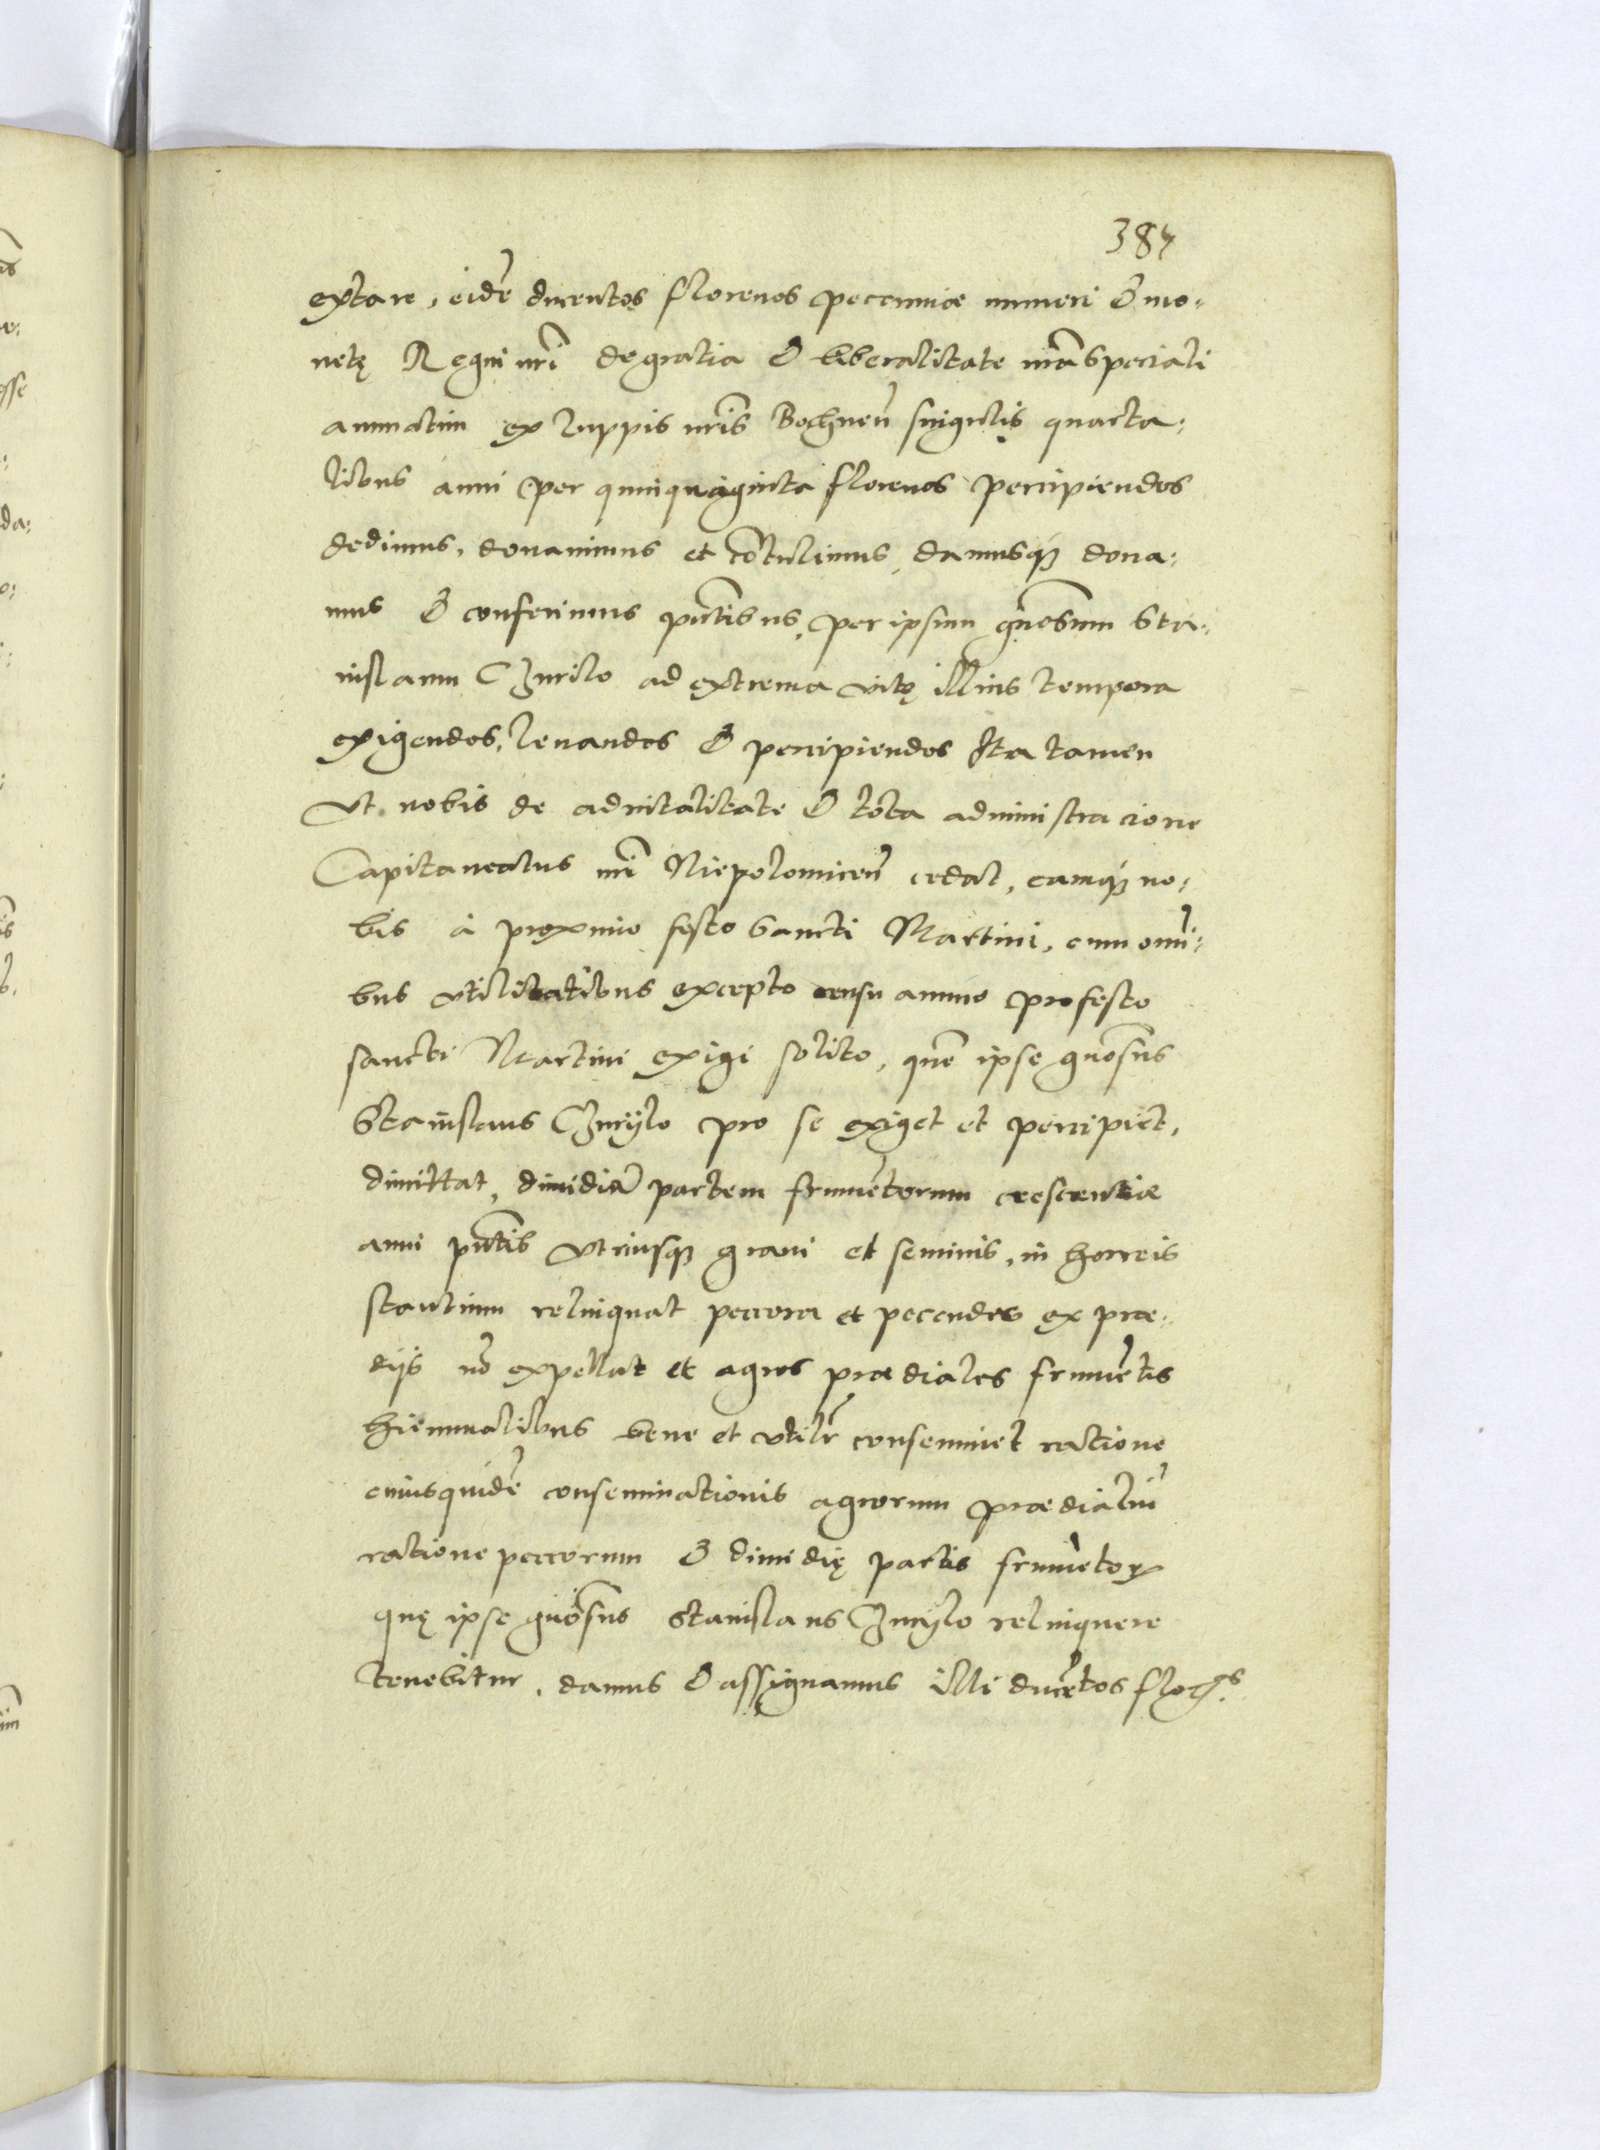 384
extare, eidē ducentos florenos pecuniae numeri & mo-
netę Regni nrī de gratia & liberalitate nrā speciali
annuatim ex zuppis nrīs Bochneñ singulis quarta-
libus anni per quinquaginta florenos percipiendos
dedimus, donavimus et cōtulimus, damusq; dona-
mus & conferimus pntībus, per ipsum gnōsum Sta-
nislaum Czurilo ad extrema vitę illius tempora
exigendos, levandos & percipiendos Ita tamen
Ut nobis de advitalitate & tota administracione
Capitaneatus nrī Niepolomiceñ cedat, eamq; no-
bis à proximo festo Sancti Martini, cum omī-
bus utilitatibus excepto censu annuo pro festo
sancti Martini exigi solito, quē ipse gnōsus
Stanislaus Czurylo pro se exiget et percipiet,
dimittat, dimidiā partem frumētorum crescentiae
anni pntīs utriusq; grani et seminis, in horreis
stantium relinquat pecora et pecudes ex prae-
dijs nō expellat et agros praediales frumētis
hiemalibus bene et utilr̄ conseminet ratione
cuiusquidē conseminationis agrorum praedialiū
ratione pecorum & dimidię partis frumētoꝝ
quę ipse gnōsus Stanislaus Czurylo relinquere
tenebitur, damus & assignamus illi ducētos